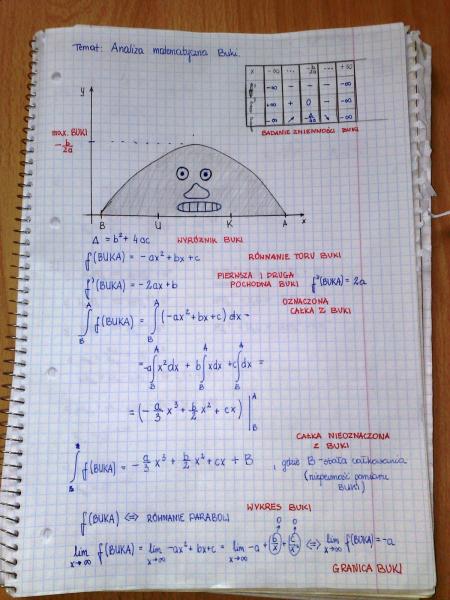 Temat: Analiza matematyczna Buki.
x -∞ ... -b/2a ... +∞
-∞ - - - -∞
+∞ + 0 - -∞
-∞ ↗ -Δ/4a ↘ -∞
BADANIE ZMIENNOŚCI BUKI
y
max. BUKI
-b/2a
B U K A x
Δ = b² + 4ac WYRÓŻNIK BUKI
f(BUKA) = -ax² + bx + c RÓWNANIE TORU BUKI
f'(BUKA) = -2ax + b PIERWSZA I DRUGA POCHODNA BUKI f''(BUKA) = 2a
OZNACZONA
CAŁKA Z BUKI
∫_B^A f(BUKA) = ∫_B^A (-ax² + bx + c) dx =
= -a∫_B^A x²dx + b∫_B^A xdx + c∫_B^A dx =
= (-a/3 x³ + b/2 x² + cx) |_B^A
CAŁKA NIEOZNACZONA
Z BUKI
f(BUKA) = -a/3 x³ + b/2 x² + cx + B , gdzie B - stała całkowania
(niepewność pomiaru
BUKI)
WYKRES BUKI
f(BUKA) ⇔ RÓWNANIE PARABOLI
0 0
lim x→∞ f(BUKA) = lim x→∞ -ax² + bx + c = lim x→∞ -a + b/x + c/x² ⇔ lim x→∞ f(BUKA) = -a
GRANICA BUKI